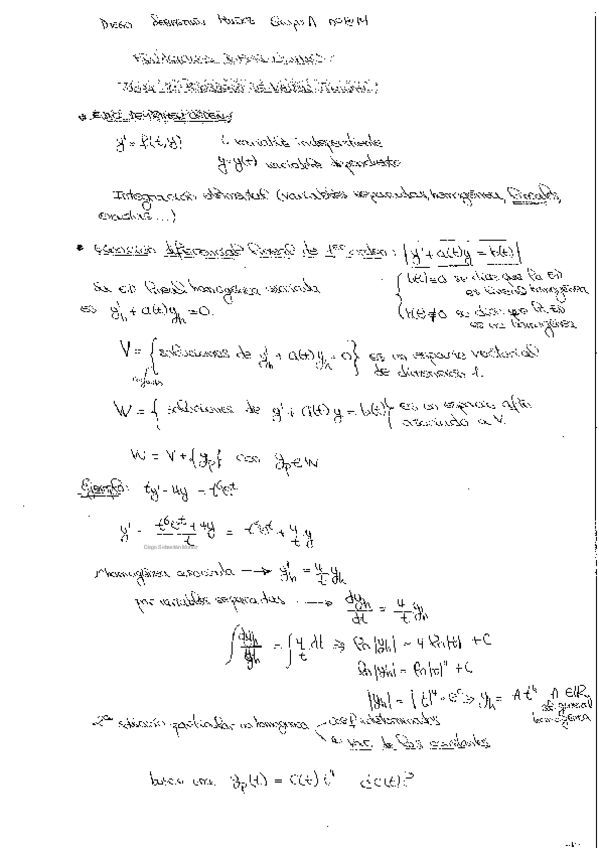 DIEGO SEBASTIÁN Grupo A
y' = f(t,y) t variable independiente
y=y(t) variable dependiente
Integración elemental (variables separadas, homogénea, lineales,
exactas...)
• Ecuación diferencial lineal de 1er orden: y' + a(t)y = b(t)
b(t)=0 se dice que la ED
es lineal homogénea
La ED lineal homogénea asociada
es y'h + a(t)yh = 0.
b(t)≠0 se dice que la ED
es no homogénea
V = { soluciones de y'h + a(t)yh = 0 } es un espacio vectorial
de dimensión 1.
W = { soluciones de y' + a(t)y = b(t) } es un espacio afín
asociado a V.
W = V + {yp} con yp ∈ W
Ejemplo: ty' - 4y = t⁶eᵗ
y' = (t⁶eᵗ + 4y)/t = t⁵eᵗ + 4/t y
Diego Sebastián Muñoz
Homogénea asociada → y'h = 4/t yh
por variables separadas → dyh/dt = 4/t yh
∫ dyh/yh = ∫ 4/t dt ⇒ ln|yh| = 4 ln|t| + C
ln|yh| = ln|t|⁴ + C
|yh| = |t|⁴ · eᶜ ⇒ yh = A t⁴ A ∈ ℝ
sol general
homogénea
2ª solución particular no homogénea coef indeterminados
var. de las constantes
busco una yp(t) = C(t) t⁴ ¿C(t)?